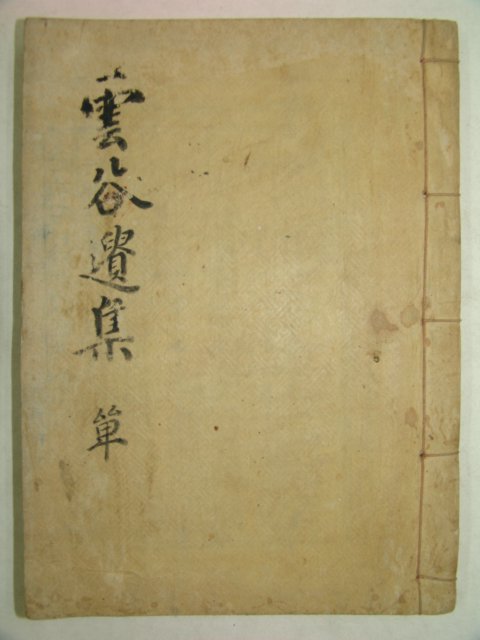 雲谷遺集 単